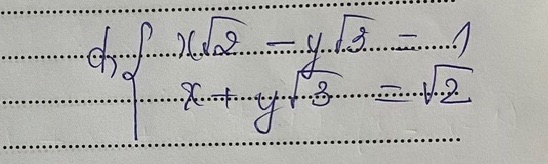 d, { x√2 - y√3 = 1
x + y√3 = √2